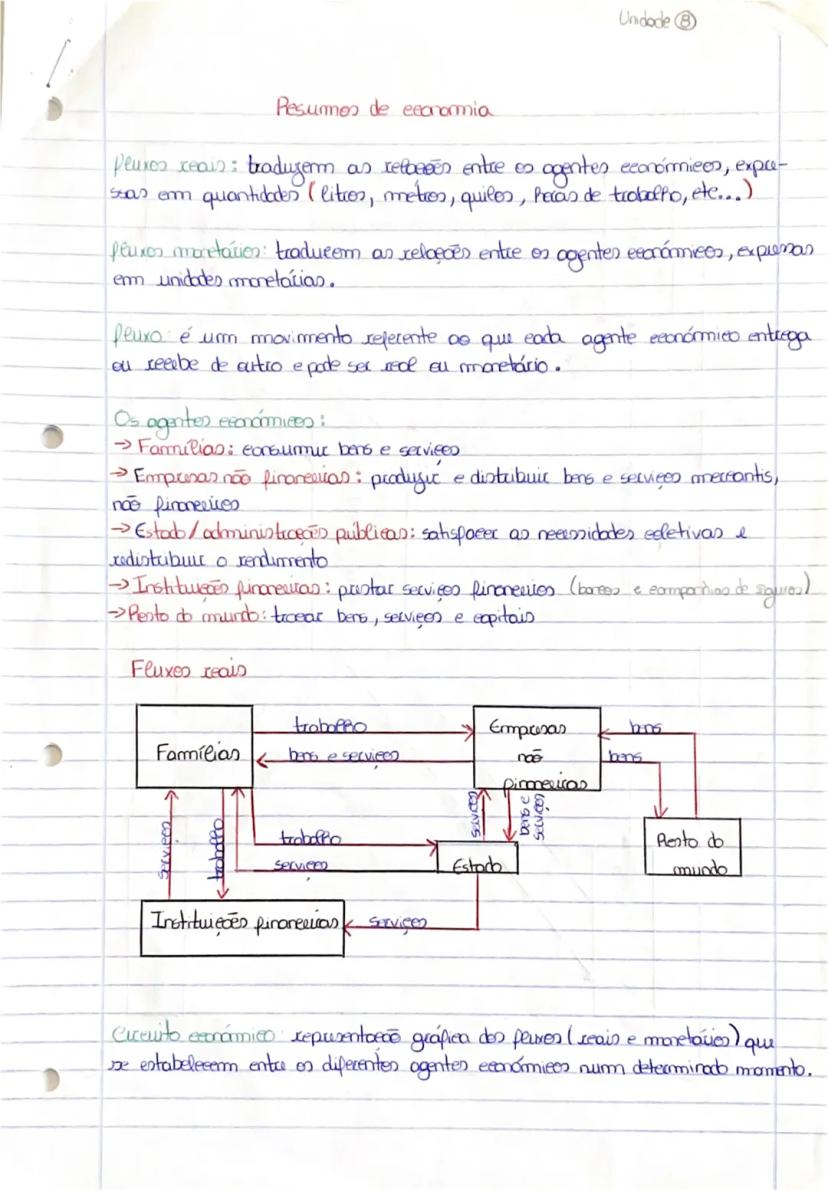 Unidade 8
Resumos de economia
fluxos reais: traduzem as relações entre os agentes económicos, expre-
ssas em quantidades (litros, metros, quilos, horas de trabalho, etc...)
fluxos monetários: traduzem as relações entre os agentes económicos, expressas
em unidades monetárias.
fluxo: é um movimento referente ao que cada agente económico entrega
ou recebe de outro e pode ser real ou monetário.
Os agentes económicos:
→ Famílias: consumir bens e serviços
→ Empresas não financeiras: produzir e distribuir bens e serviços mercantis,
não financeiros
→ Estado/administrações públicas: satisfazer as necessidades coletivas e
redistribuir o rendimento
→ Instituições financeiras: prestar serviços financeiros (bancos e companhias de seguros)
→ Resto do mundo: trocar bens, serviços e capitais
Fluxos reais
trabalho
Empresas
não
financeiras
bens
Famílias
bens e serviços
bens
serviços
trabalho
serviços
bens e
serviços
trabalho
Resto do
mundo
serviços
Estado
Instituições financeiras
serviços
Circuito económico: representação gráfica dos fluxos (reais e monetários) que
se estabelecem entre os diferentes agentes económicos num determinado momento.